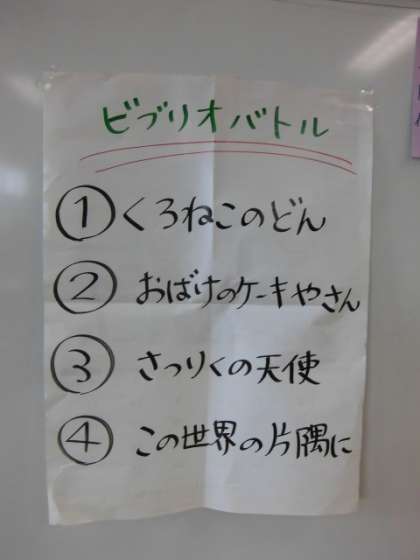 ビブリオバトル
① くろねこのどん
② おばけのケーキやさん
③ さつりくの天使
④ この世界の片隅に